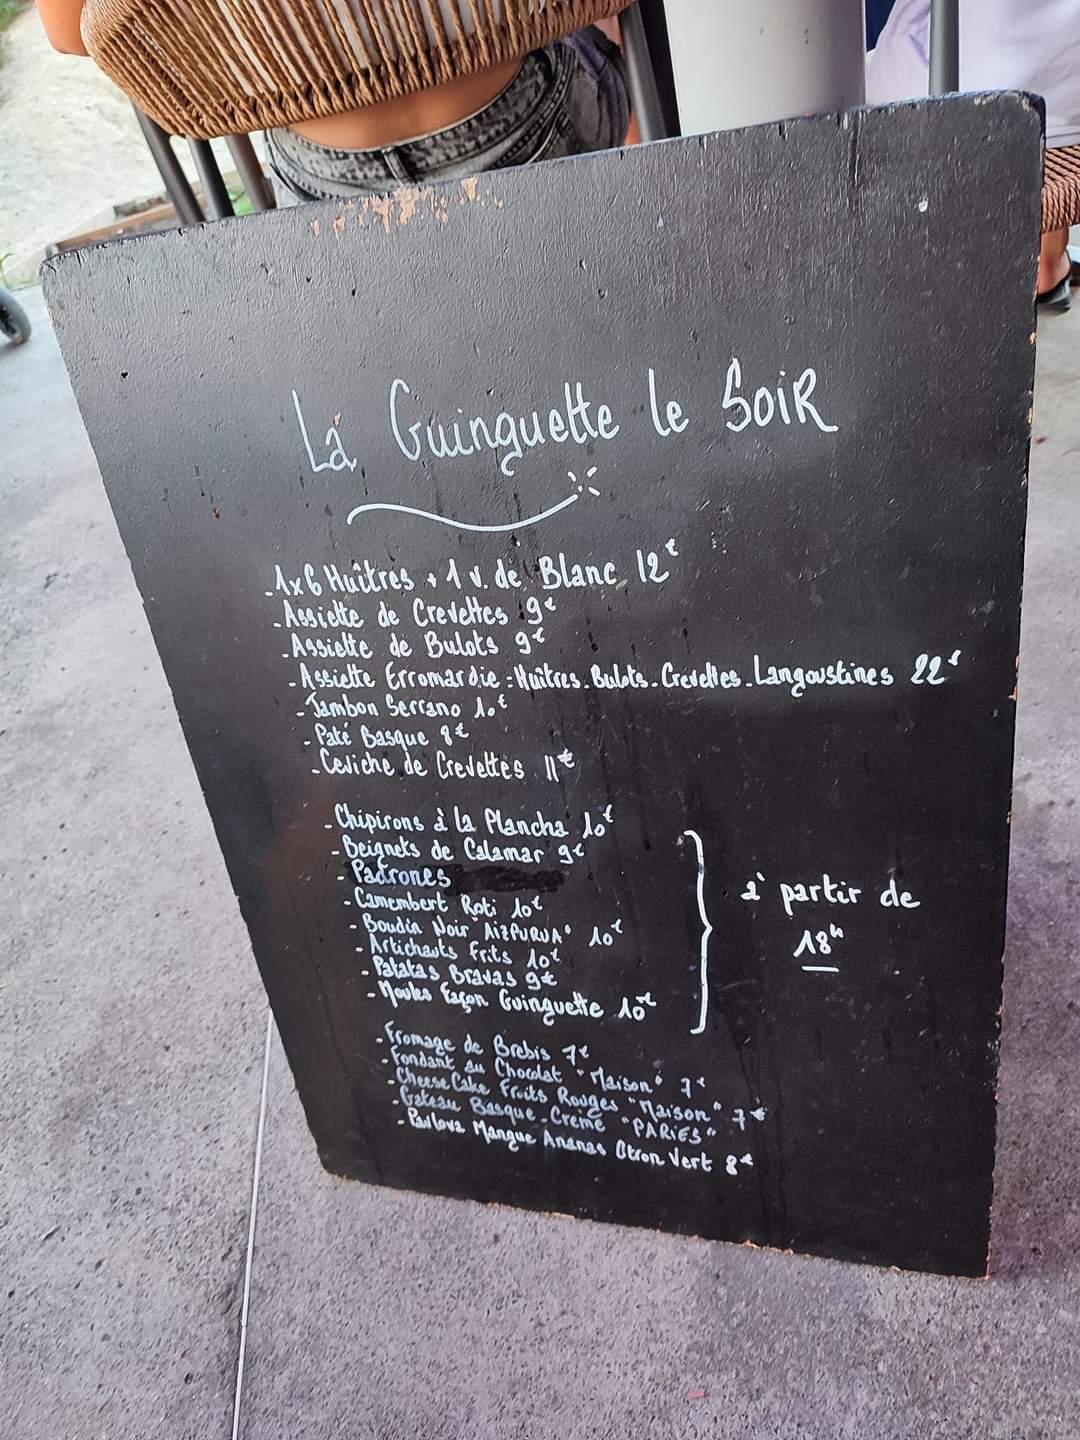 La Guinguette le SOIR
- 1x6 Huîtres + 1 v. de Blanc 12€
- Assiette de Crevettes 9€
- Assiette de Bulots 9€
- Assiette Erromardie - Huîtres - Bulots - Crevettes - Langoustines 22€
- Jambon Serrano 10€
- Paté Basque 8€
- Ceviche de Crevettes 11€
- Chipirons à la Plancha 10€
- Beignets de Calamar 9€
- Padrones
- Camembert Roti 10€
- Boudin Noir "AIZPURUA" 10€
- Artichauts Frits 10€
- Patatas Bravas 9€
- Moules façon Guinguette 10€
à partir de
18h
- Fromage de Brebis 7€
- Fondant au Chocolat "Maison" 7€
- Cheese Cake Fruits Rouges "Maison" 7€
- Gateau Basque - Creme "PARIES" 7€
- Pavlova Mangue Ananas Citron Vert 8€